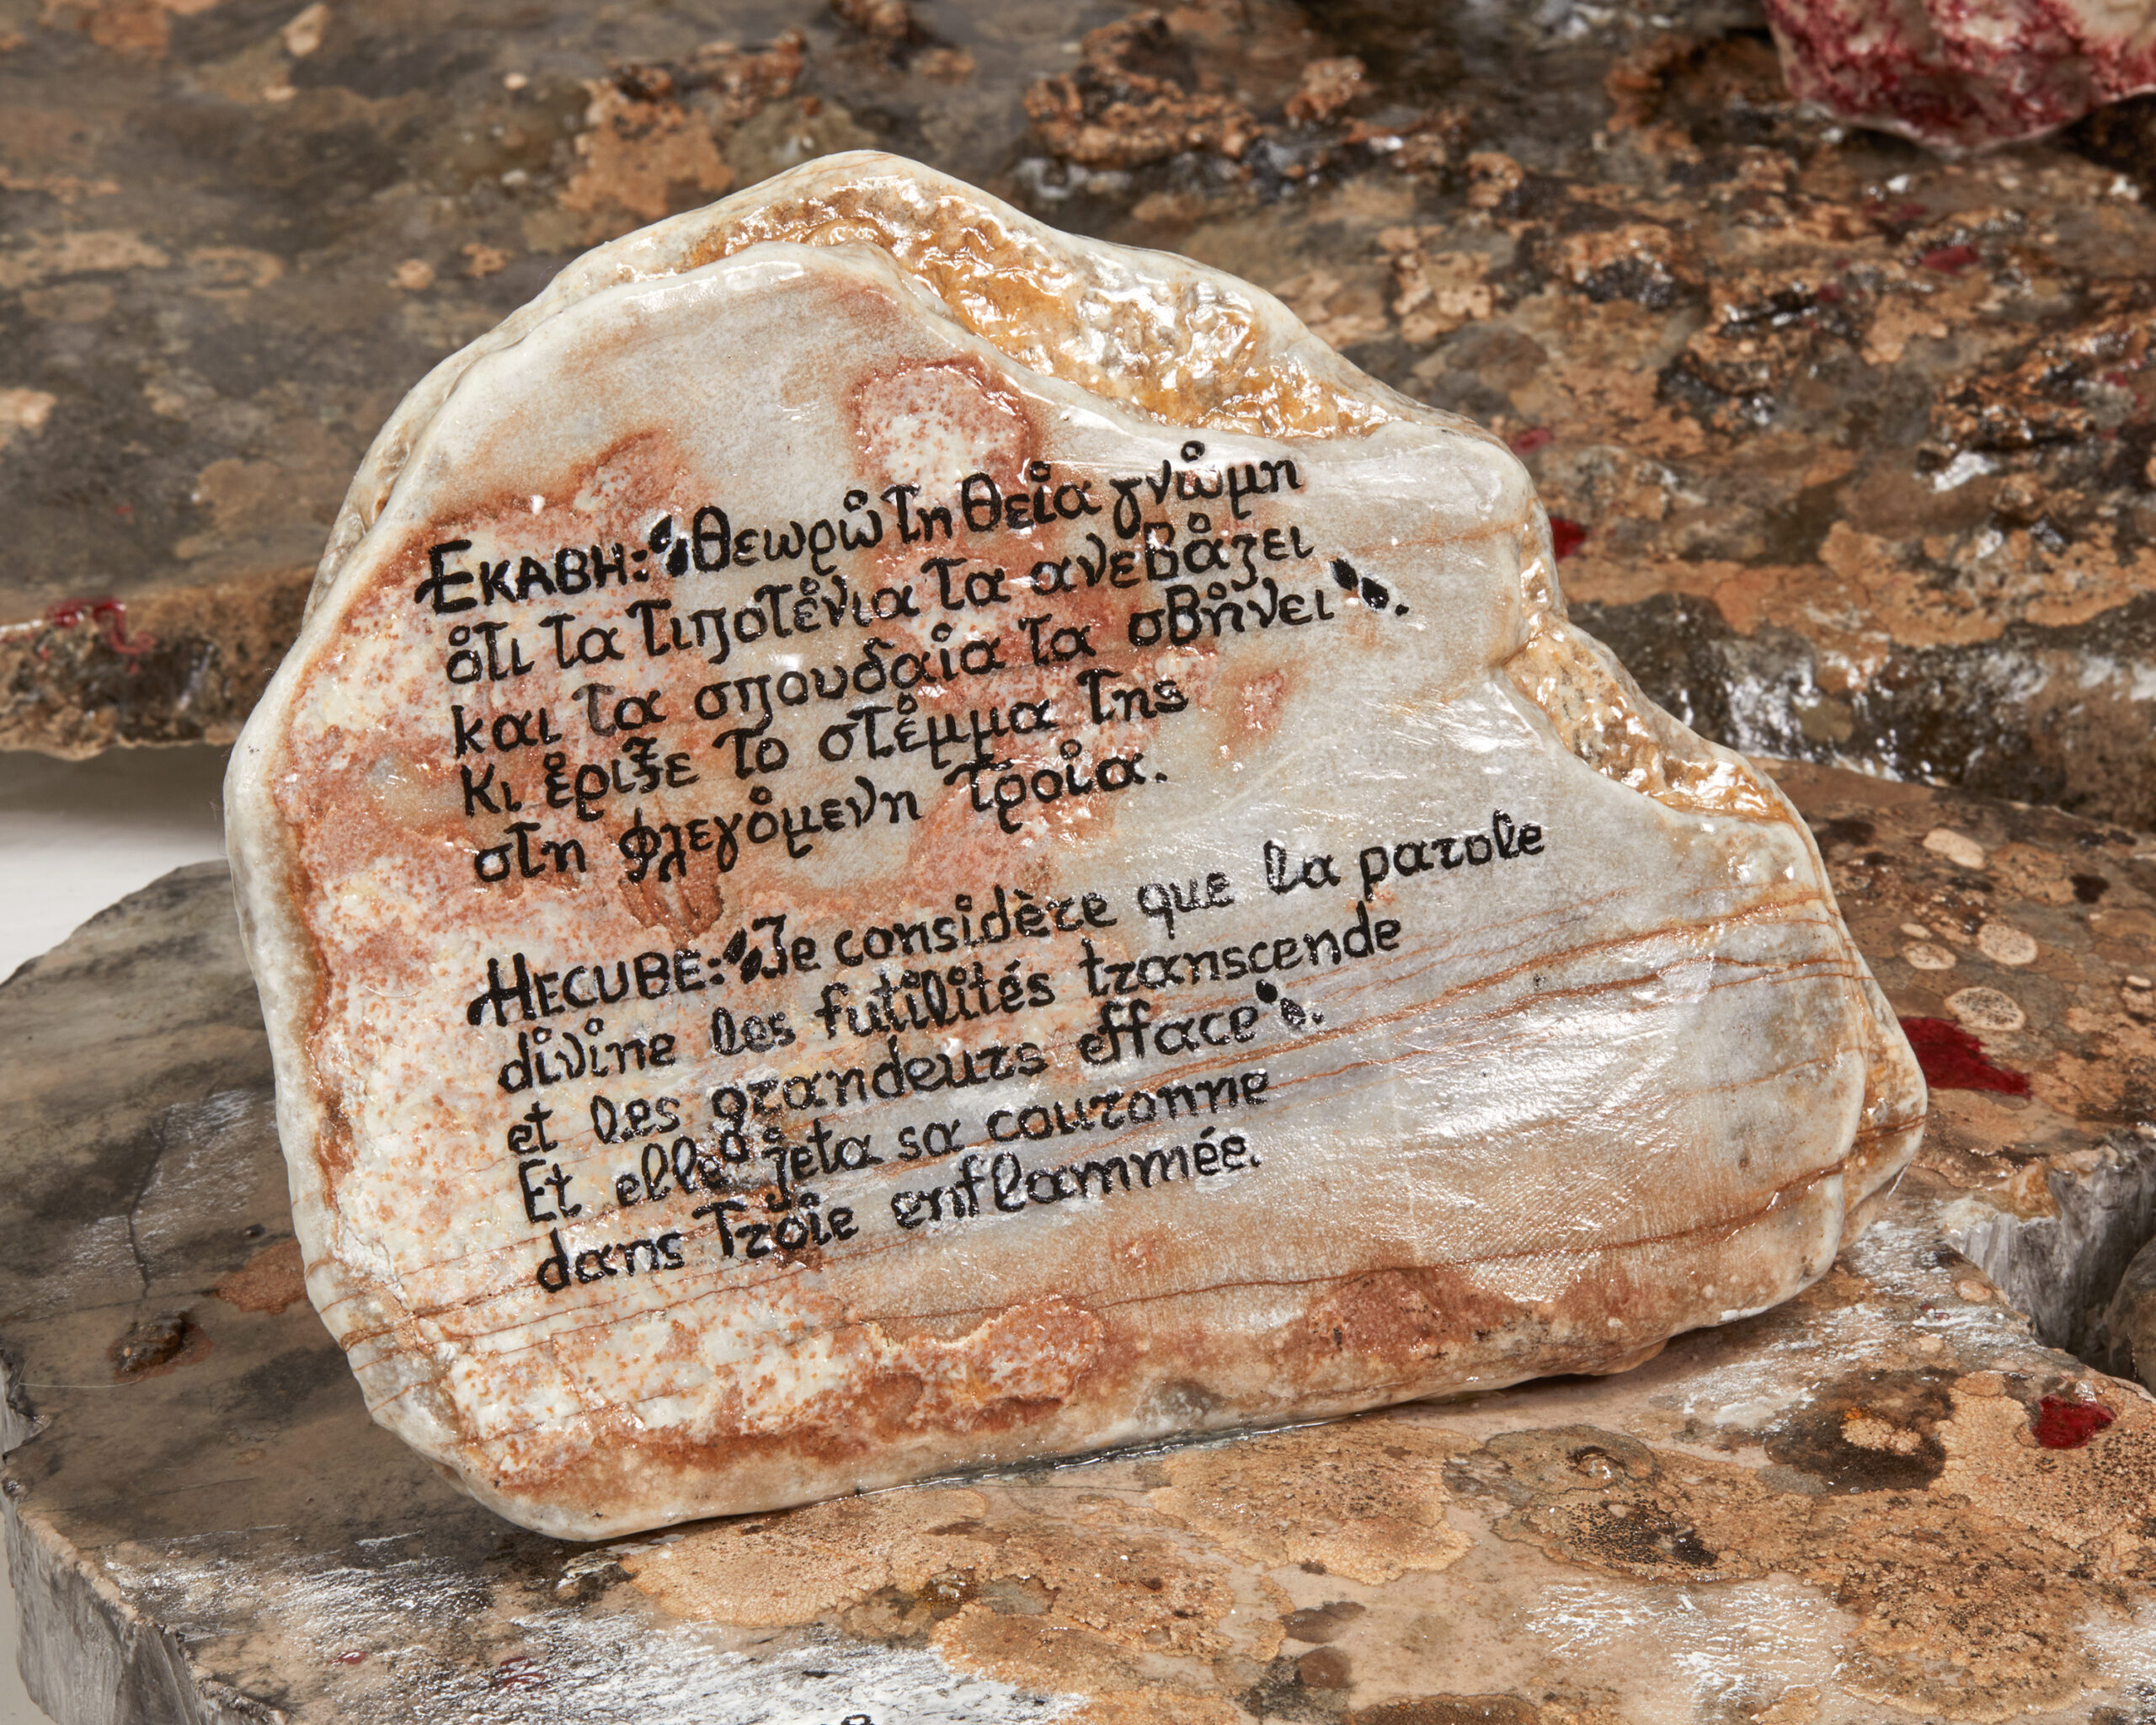 ΕΚΑΒΗ: "θεωρώ τη θεία γνώμη
ότι τα τιποτένια τα ανεβάζει
και τα σπουδαία τα σβήνει".
κι έριξε το στέμμα της
στη φλεγόμενη Τροία.
HECUBE: "Je considère que la parole
divine les futilités transcende
et les grandeurs efface".
Et elle jeta sa couronne
dans Troie enflammée.